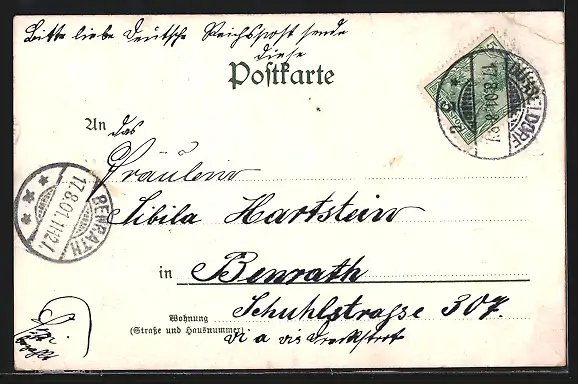 Bitte liebe Deutsche Reichspost sende
diese
Postkarte
DÜSSELDORF
17.8.01.8-9V
An das
Fräulein
Sibila Hartstein
BENRATH
17.8.01.11-12V
in Benrath
Wohnung
(Straße und Hausnummer)
Schuhlstraße 307.
vis a vis